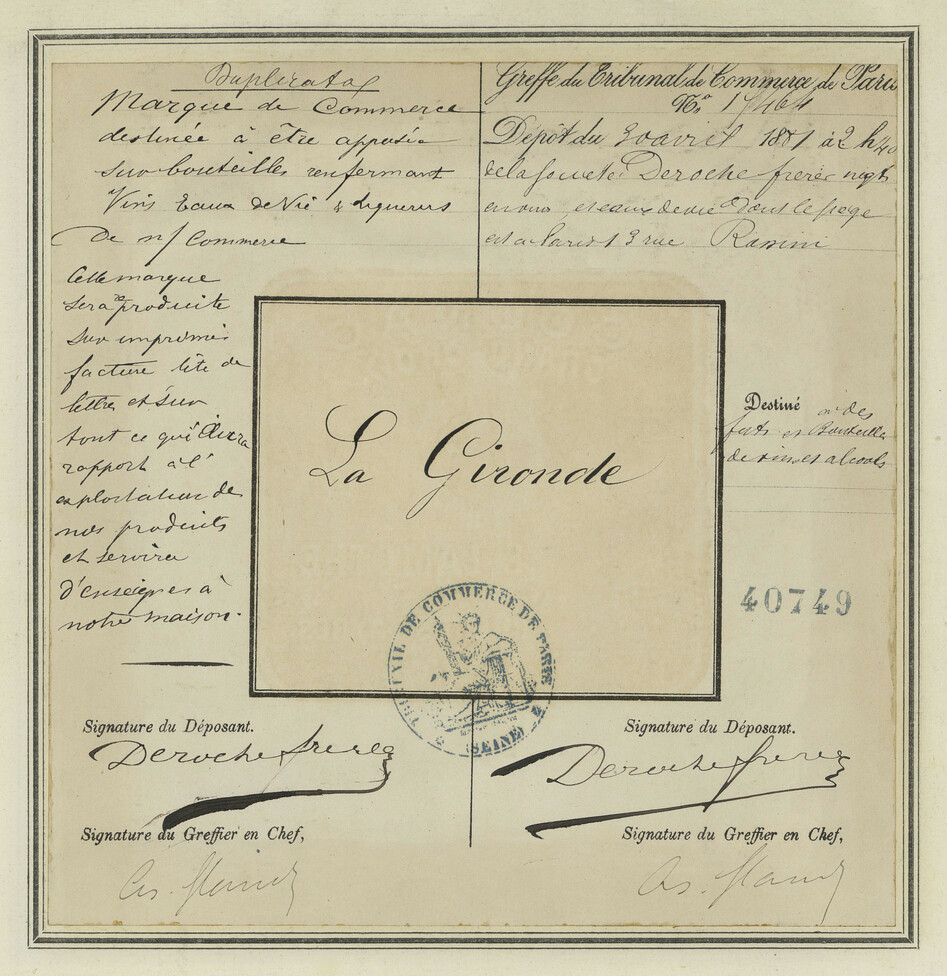 Duplicata
Marque de Commerce
destinée à être apposée
sur bouteilles renfermant
Vins Eaux de Vie & Liqueurs
De n/ Commerce
Cette marque
sera reproduite
sur imprimés
facture tête de
lettre et sur
tout ce qui aura
rapport à l'
exploitation de
nos produits
et servira
d'enseignes à
notre maison.
Greffe du Tribunal de Commerce de Paris
No
Dépôt du 30 avril 1881 à 2 h 40
de la société Deroche frères negts
en vins et eaux de vie dont le siège
est à Paris 13 rue
La Gironde
Destiné
fûts et Bouteilles
de vins et alcools
40749
TRIBUNAL DE COMMERCE DE PARIS
(SEINE)
Signature du Déposant.
Deroche freres
Signature du Greffier en Chef,
Signature du Déposant.
Deroche freres
Signature du Greffier en Chef,